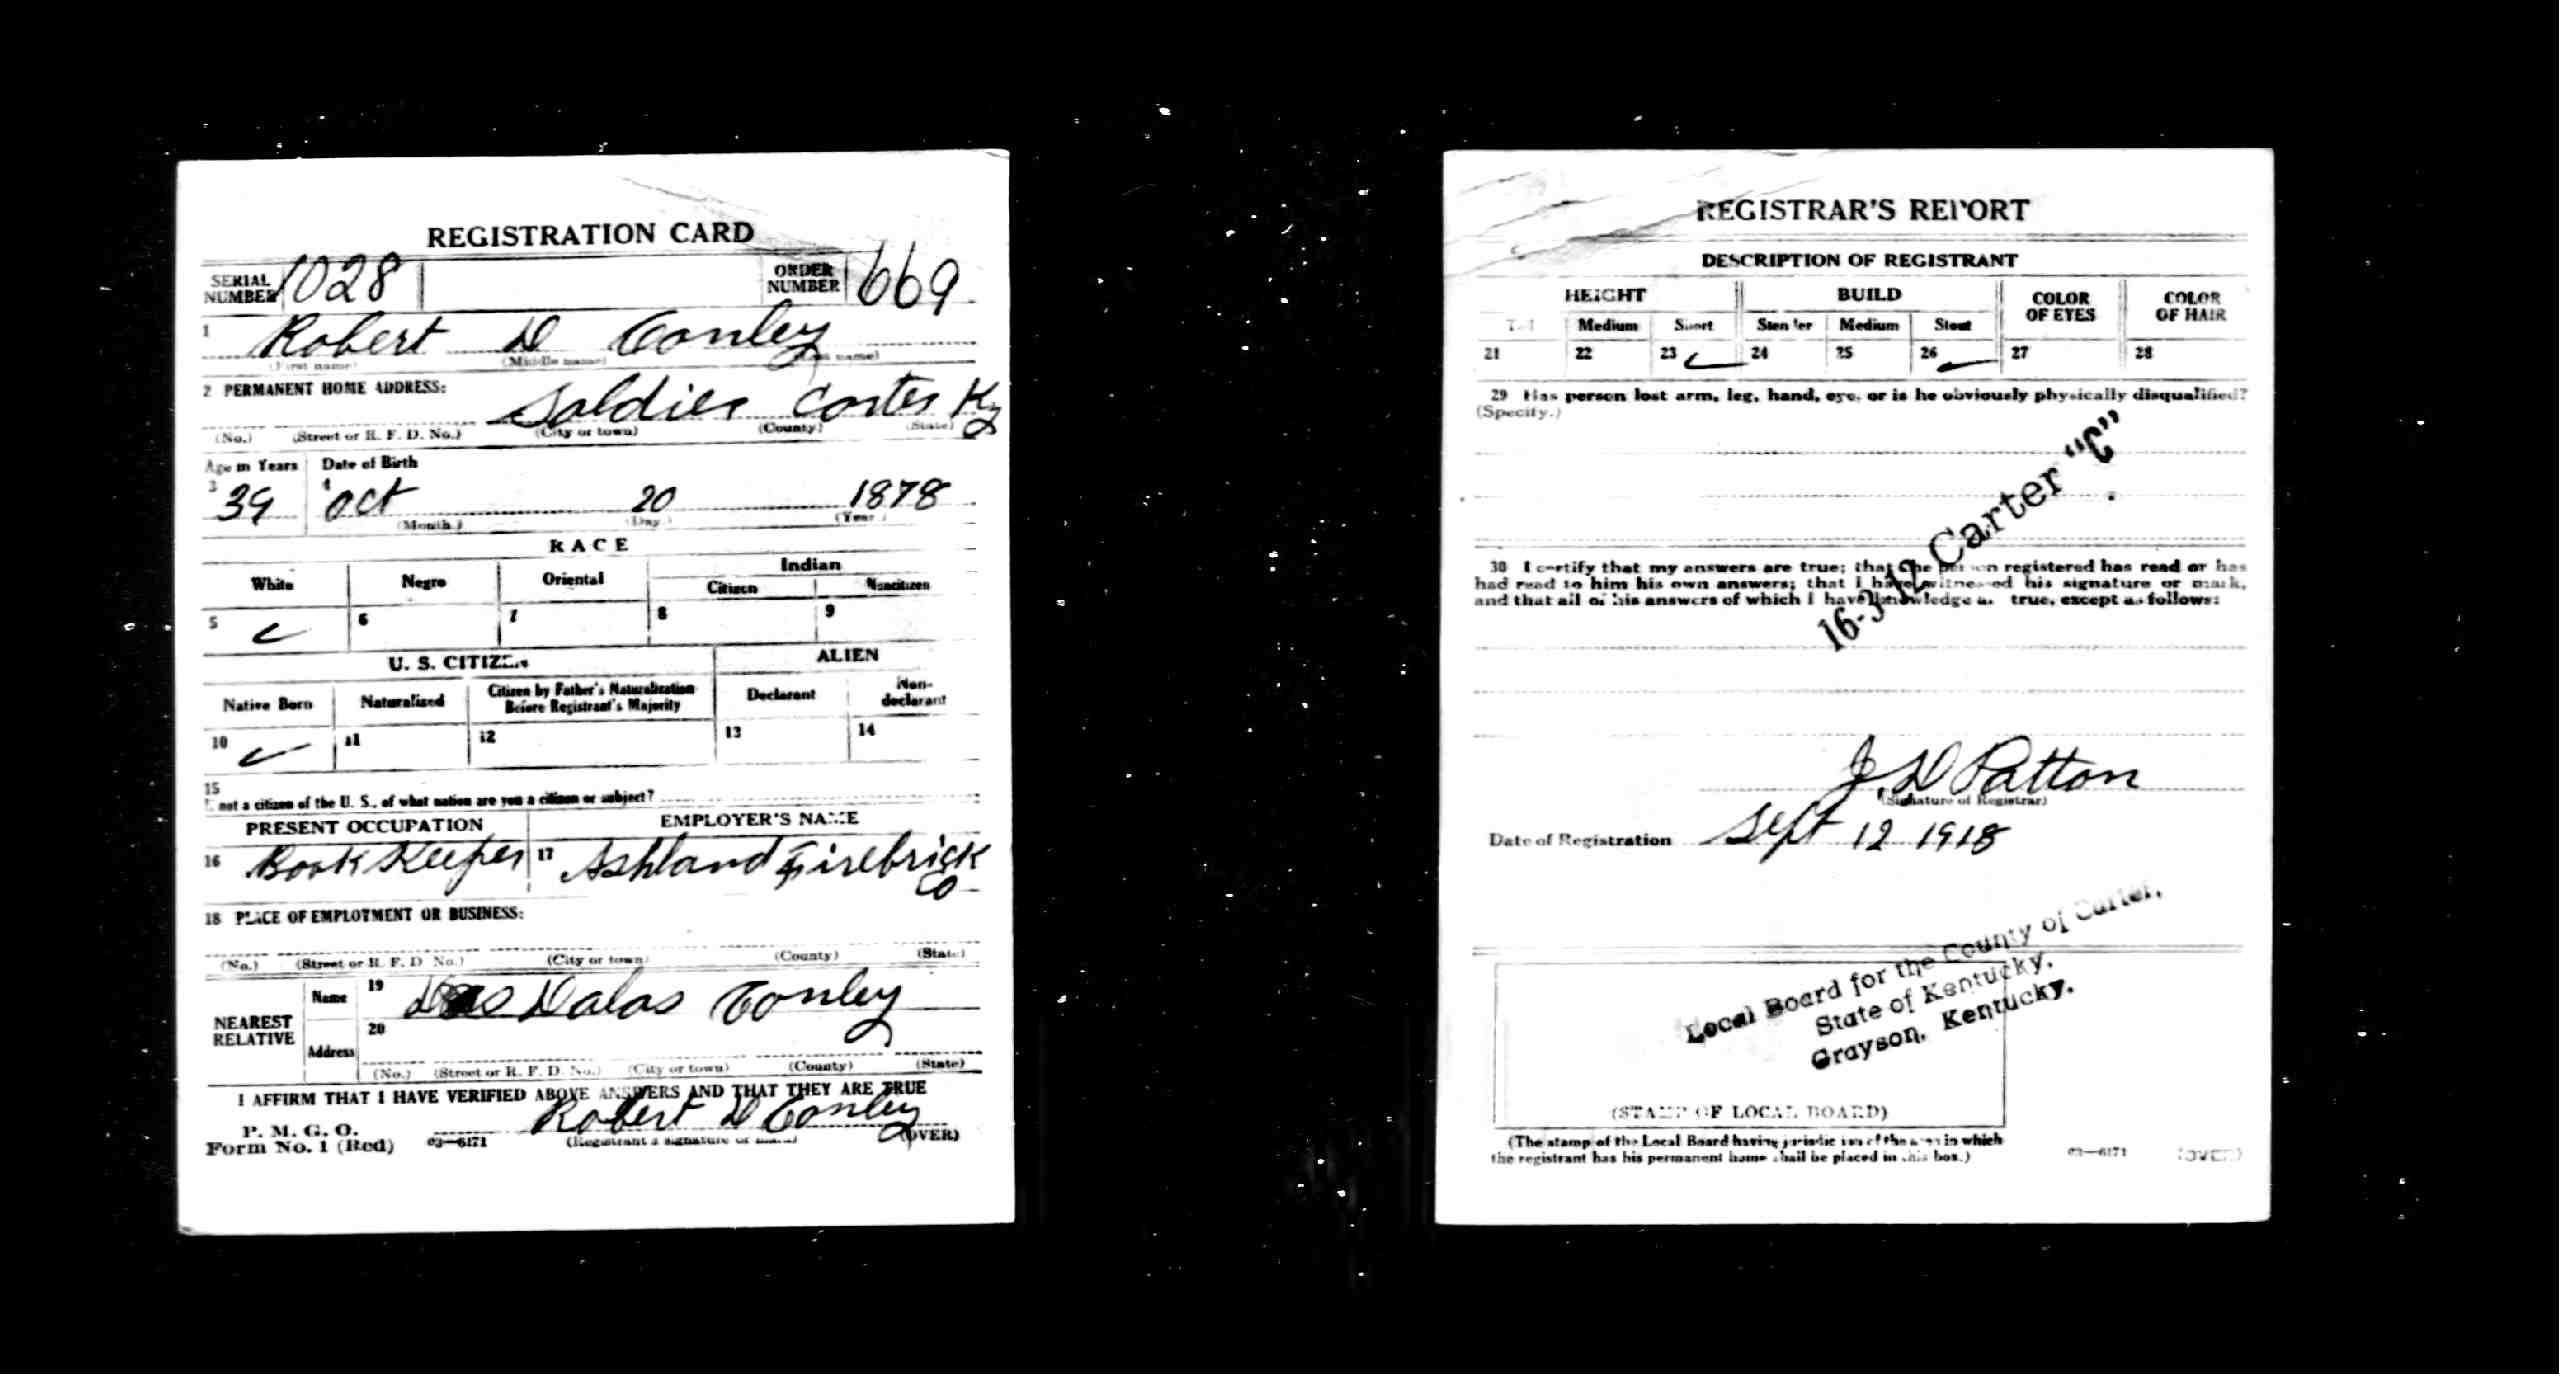 REGISTRATION CARD
SERIAL NUMBER 1028 ORDER NUMBER 669
1 Robert D Conley
(First name) (Middle name) (Last name)
2 PERMANENT HOME ADDRESS:
Soldier Carter Ky
(No.) (Street or R. F. D. No.) (City or town) (County) (State)
Age in Years Date of Birth
3 39 4 Oct 20 1878
(Month.) (Day.) (Year.)
RACE
White Negro Oriental Indian
Citizen Noncitizen
5 6 7 8 9
U. S. CITIZEN ALIEN
Native Born Naturalized Citizen by Father's Naturalization Before Registrant's Majority Declarant Non-declarant
10 11 12 13 14
15
If not a citizen of the U. S., of what nation are you a citizen or subject?
PRESENT OCCUPATION EMPLOYER'S NAME
16 Book Keeper 17 Ashland Firebrick Co
18 PLACE OF EMPLOYMENT OR BUSINESS:
(No.) (Street or R. F. D. No.) (City or town) (County) (State)
NEAREST RELATIVE Name 19 Dalas Conley
Address 20
(No.) (Street or R. F. D. No.) (City or town) (County) (State)
I AFFIRM THAT I HAVE VERIFIED ABOVE ANSWERS AND THAT THEY ARE TRUE
Robert D Conley
P. M. G. O.
Form No. 1 (Red) 03—6171 (Registrant's signature or mark) (OVER)
REGISTRAR'S REPORT
DESCRIPTION OF REGISTRANT
HEIGHT BUILD COLOR OF EYES COLOR OF HAIR
Tall Medium Short Slender Medium Stout
21 22 23 24 25 26 27 28
29 Has person lost arm, leg, hand, eye, or is he obviously physically disqualified?
(Specify.)
16-3-12 Carter "C"
30 I certify that my answers are true; that the person registered has read or has
had read to him his own answers; that I have witnessed his signature or mark,
and that all of his answers of which I have knowledge are true, except as follows:
J. D Patton
(Signature of Registrar)
Date of Registration Sept 12 1918
Local Board for the County of Carter,
State of Kentucky,
Grayson, Kentucky.
(STAMP OF LOCAL BOARD)
(The stamp of the Local Board having jurisdiction of the area in which
the registrant has his permanent home shall be placed in this box.)
03—6171 (OVER)